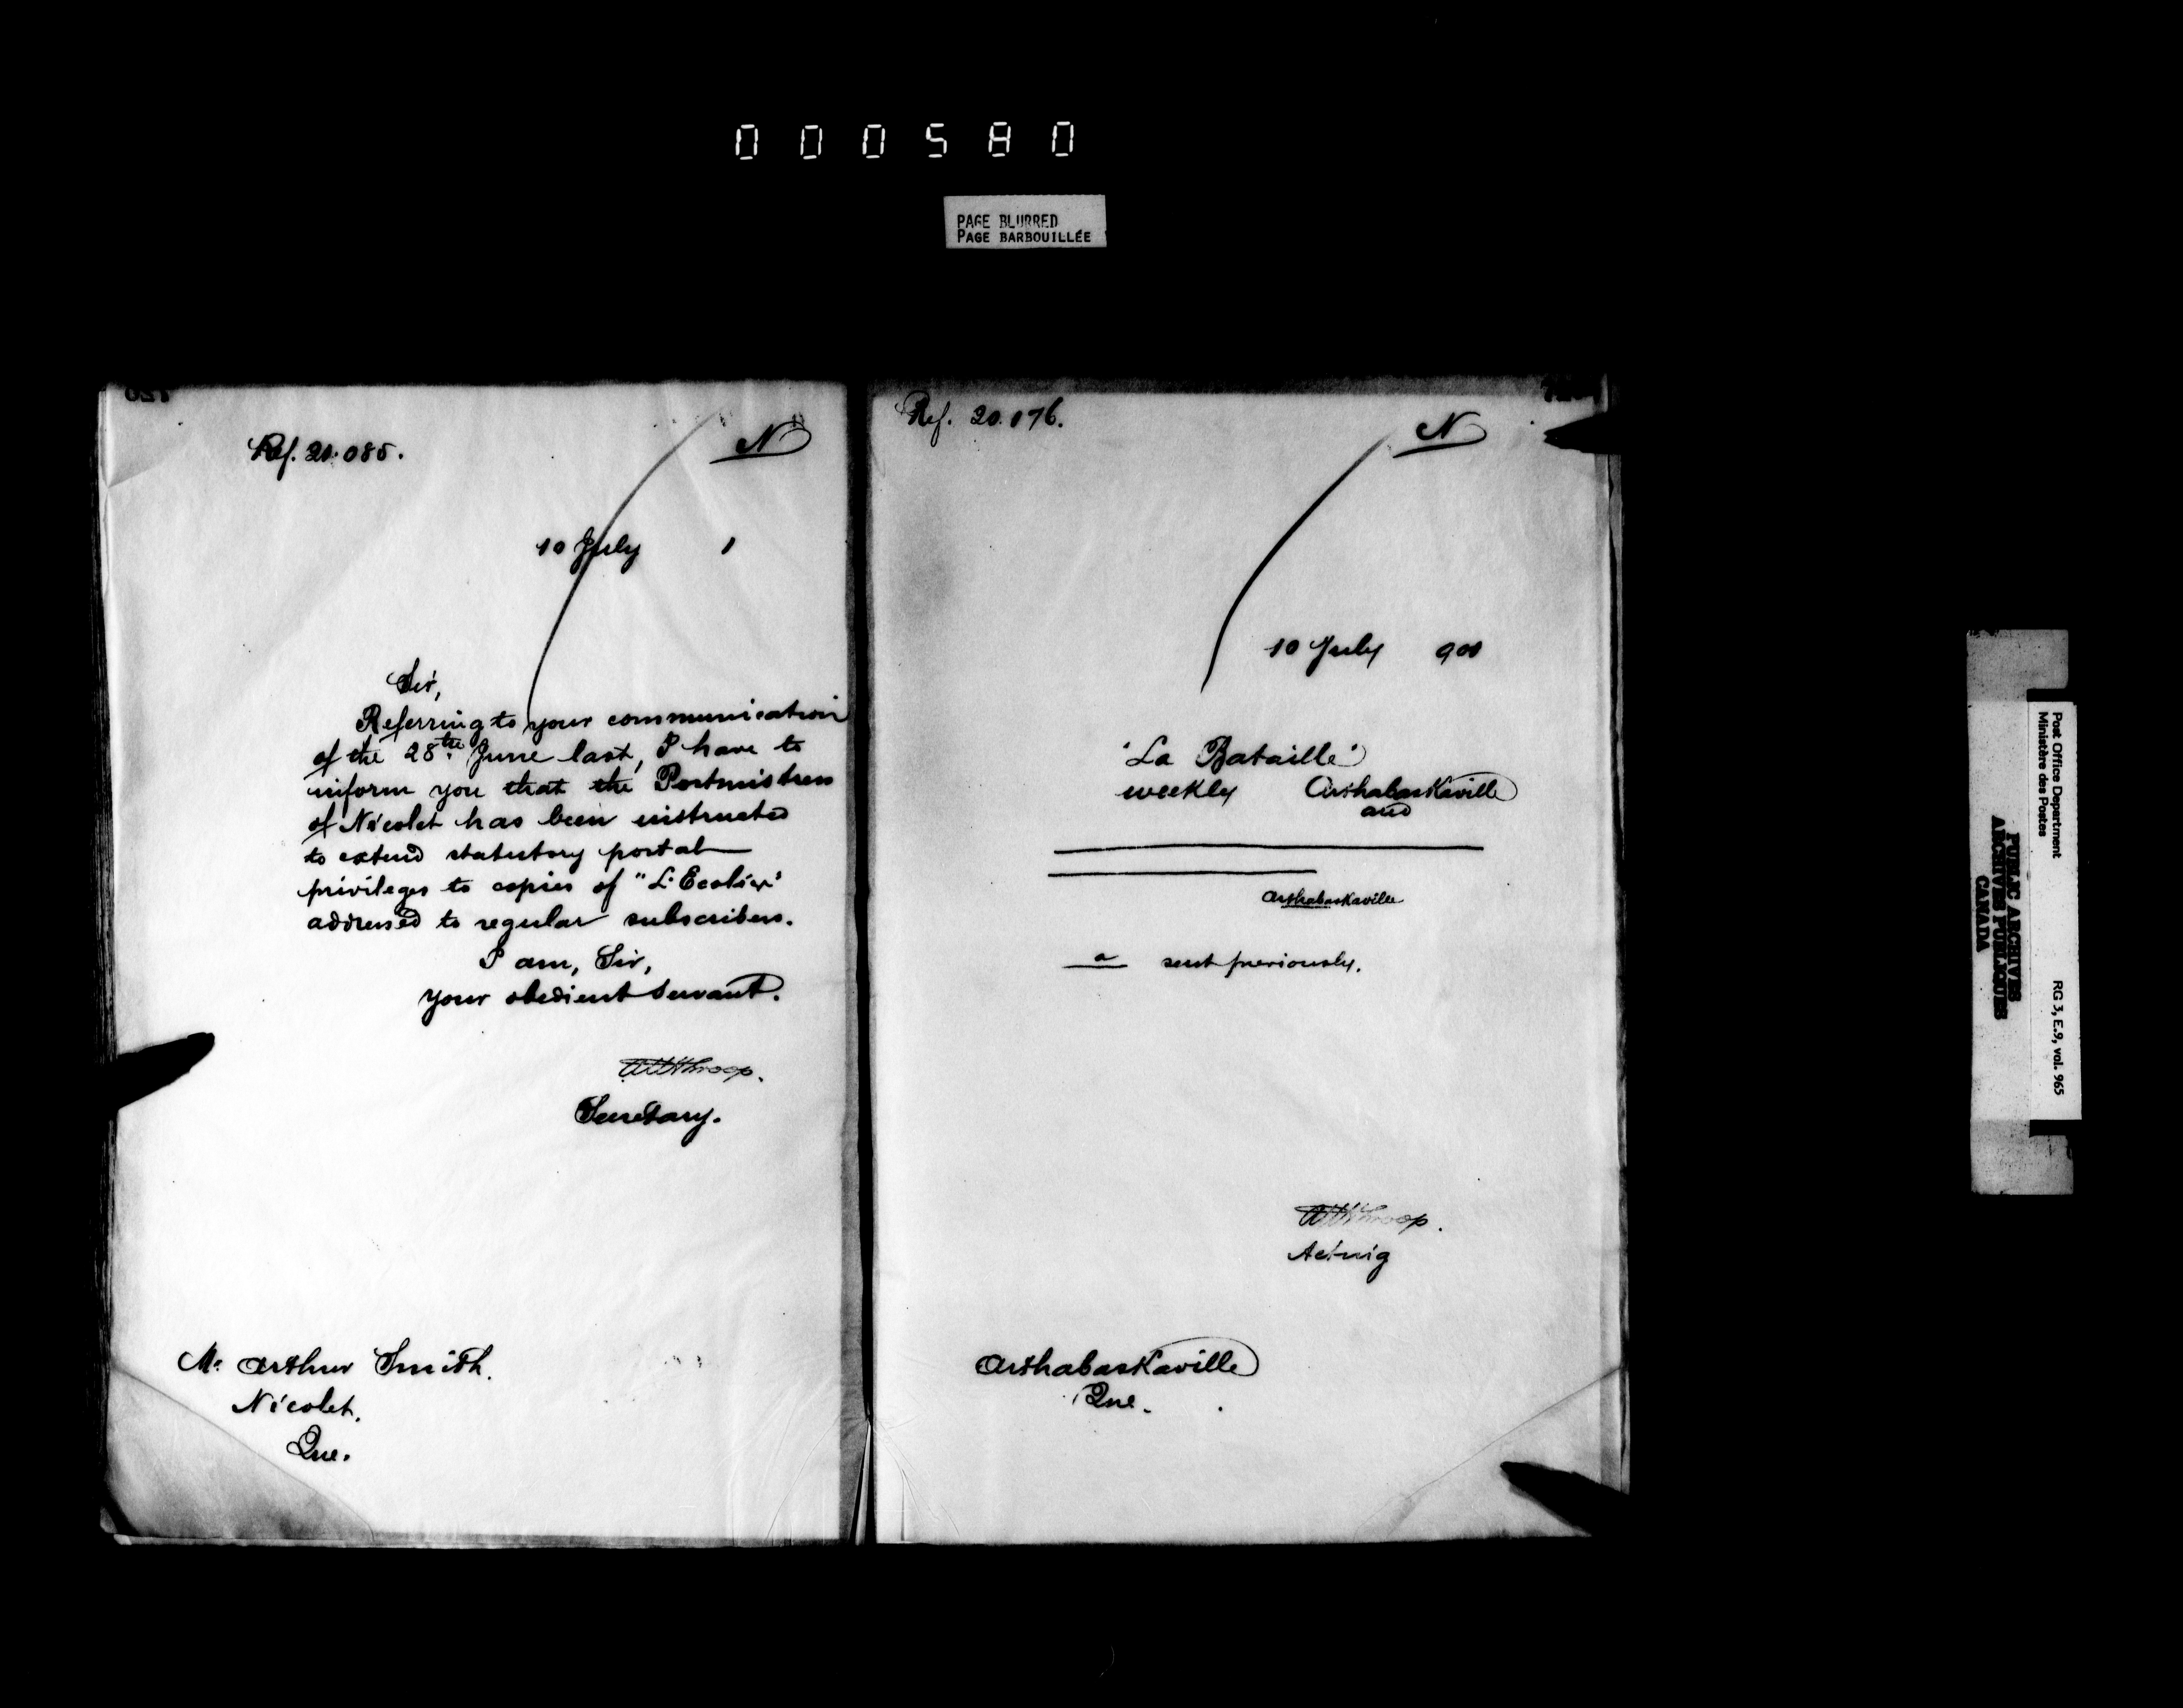 000580
PAGE BLURRED
PAGE BARBOUILLÉE
Ref. 20.085.
N
10 July 1
Sir,
Referring to your communication
of the 28th June last, I have to
inform you that the Postmistress
of Nicolet has been instructed
to extend statutory postal
privileges to copies of "L'Ecolier"
addressed to regular subscribers.
I am, Sir,
Your obedient servant.
Throop.
Secretary.
Mr Arthur Smith.
Nicolet,
Que.
Ref. 20.076.
N
10 July 901
'La Bataille'
weekly Arthabaskaville
and
Arthabaskaville
a sent previously.
Throop.
Acting
Arthabaskaville
Que.
Post Office Department
Ministère des Postes
RG 3, E.9, vol. 965
PUBLIC ARCHIVES
ARCHIVES PUBLIQUES
CANADA